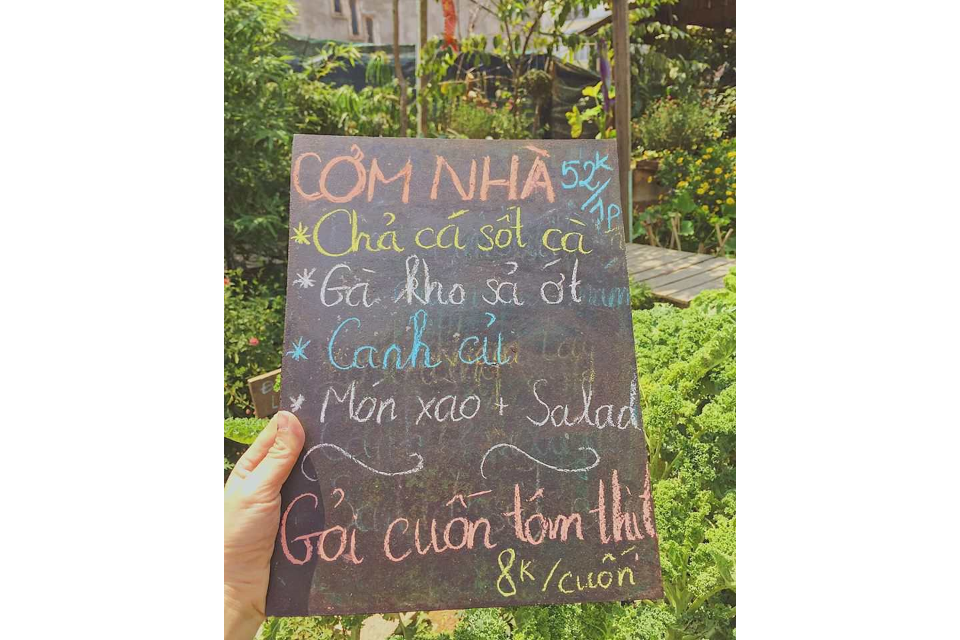 CƠM NHÀ 52K/1P
* Chả cá sốt cà
* Gà kho sả ớt
* Canh củ
* Món xào + Salad
Gỏi cuốn tôm thịt
8K/cuốn